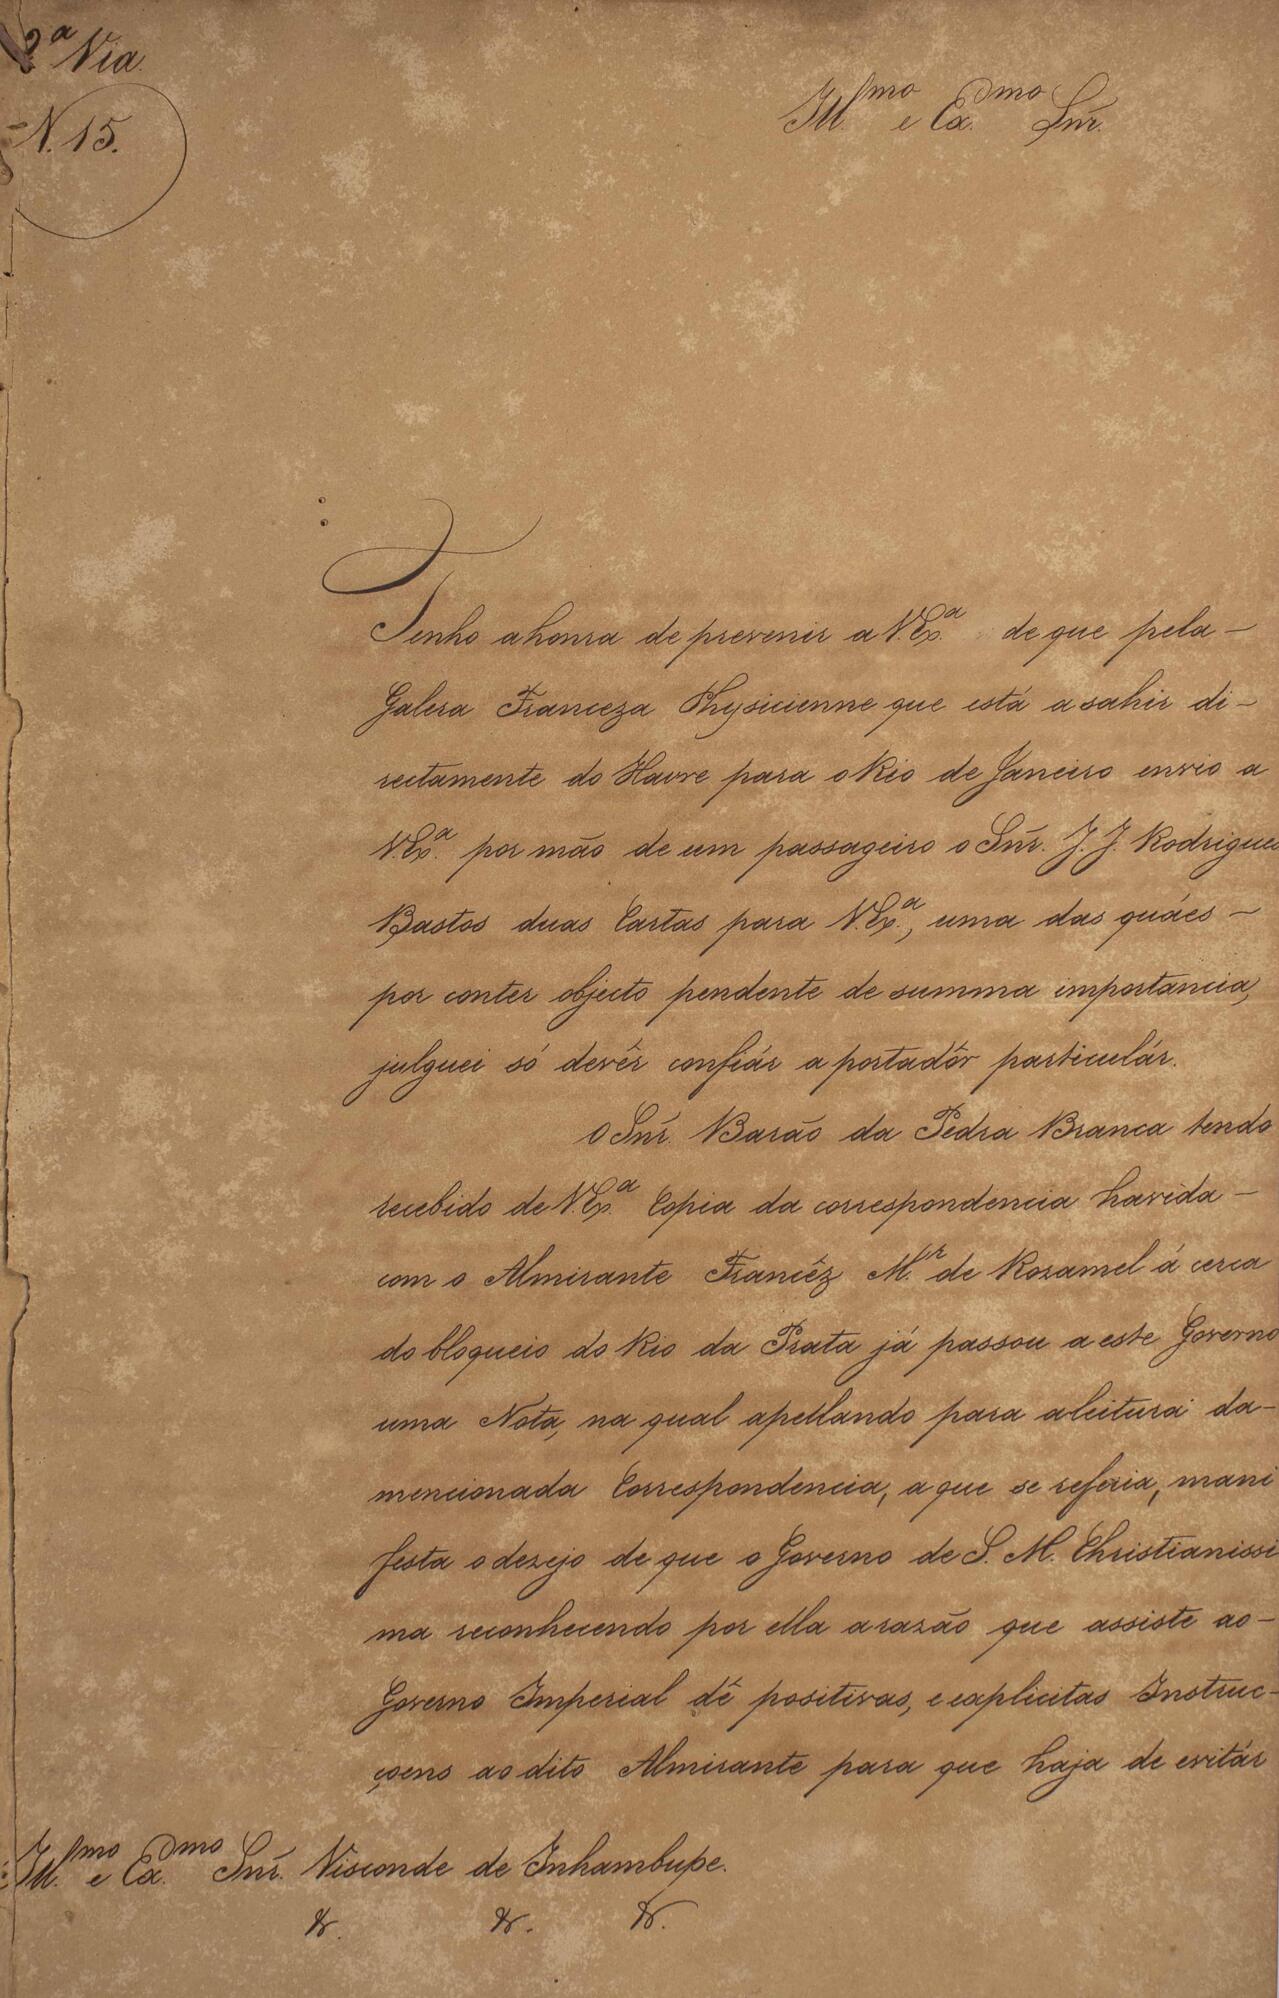 2ª Via
N. 15.
Ill.mo e Ex.mo Snr.
Tenho a honra de prevenir a V. Ex.ª de que pela
Galera Franceza Physicienne que está a sahir di-
rectamente do Havre para o Rio de Janeiro envio a
V. Ex.ª por mão de um passageiro o Snr. J. J. Rodrigues
Bastos duas Cartas para V. Ex.ª, uma das quáes
por conter objecto pendente de summa importancia,
julguei só devêr confiár a portadôr particulár.
O Snr. Barão da Pedra Branca tendo
recebido de V. Ex.ª Copia da correspondencia havida
com o Almirante Francêz M.r de Rozamel á cerca
do bloqueio do Rio da Prata já passou a este Governo
uma Nota, na qual apellando para a leitura da
mencionada Correspondencia, a que se referia, mani
festa o dezejo de que o Governo de S. M. Christianissi
ma reconhecendo por ella a razão que assiste ao
Governo Imperial dê positivas, e explicitas Instruc-
çoens ao dito Almirante para que haja de evitár
Ill.mo e Ex.mo Snr. Visconde de Inhambupe.
&. &. &.